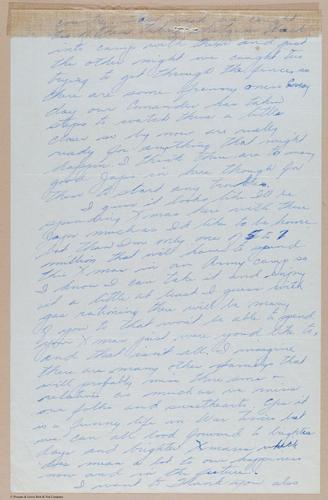 into camp with them and just
the other night we caught two
trying to get through the fence, so
there are some brewing once every
day our Comander has taken
steps to watch them a little
closer so by now we really
ready for anything that might
happen I think there are to many
good Japs in here though for
them to start any trouble.
I guess it looks like I'll be
spending Xmas here with these
Japs much as I'd like to be home
but then I'm only one of 5 to 7
million that will have to spend
this Xmas in an Army camp so
I know I can take it and enjoy
it a little at least I guess with
gas rationing there will be many
of you to that won't be able to spend
your Xmas just were you'd like to,
and that isn't all. I imagine
there are many other familys that
will probably miss there sons or
relatives as much as we miss
our folks and sweethearts. Yes it
is a funny life in War times but
we can all look forward to brighter
days and brighter Xmases which
does mean a lot to our happiness
now and in the future.
I want to thank you also